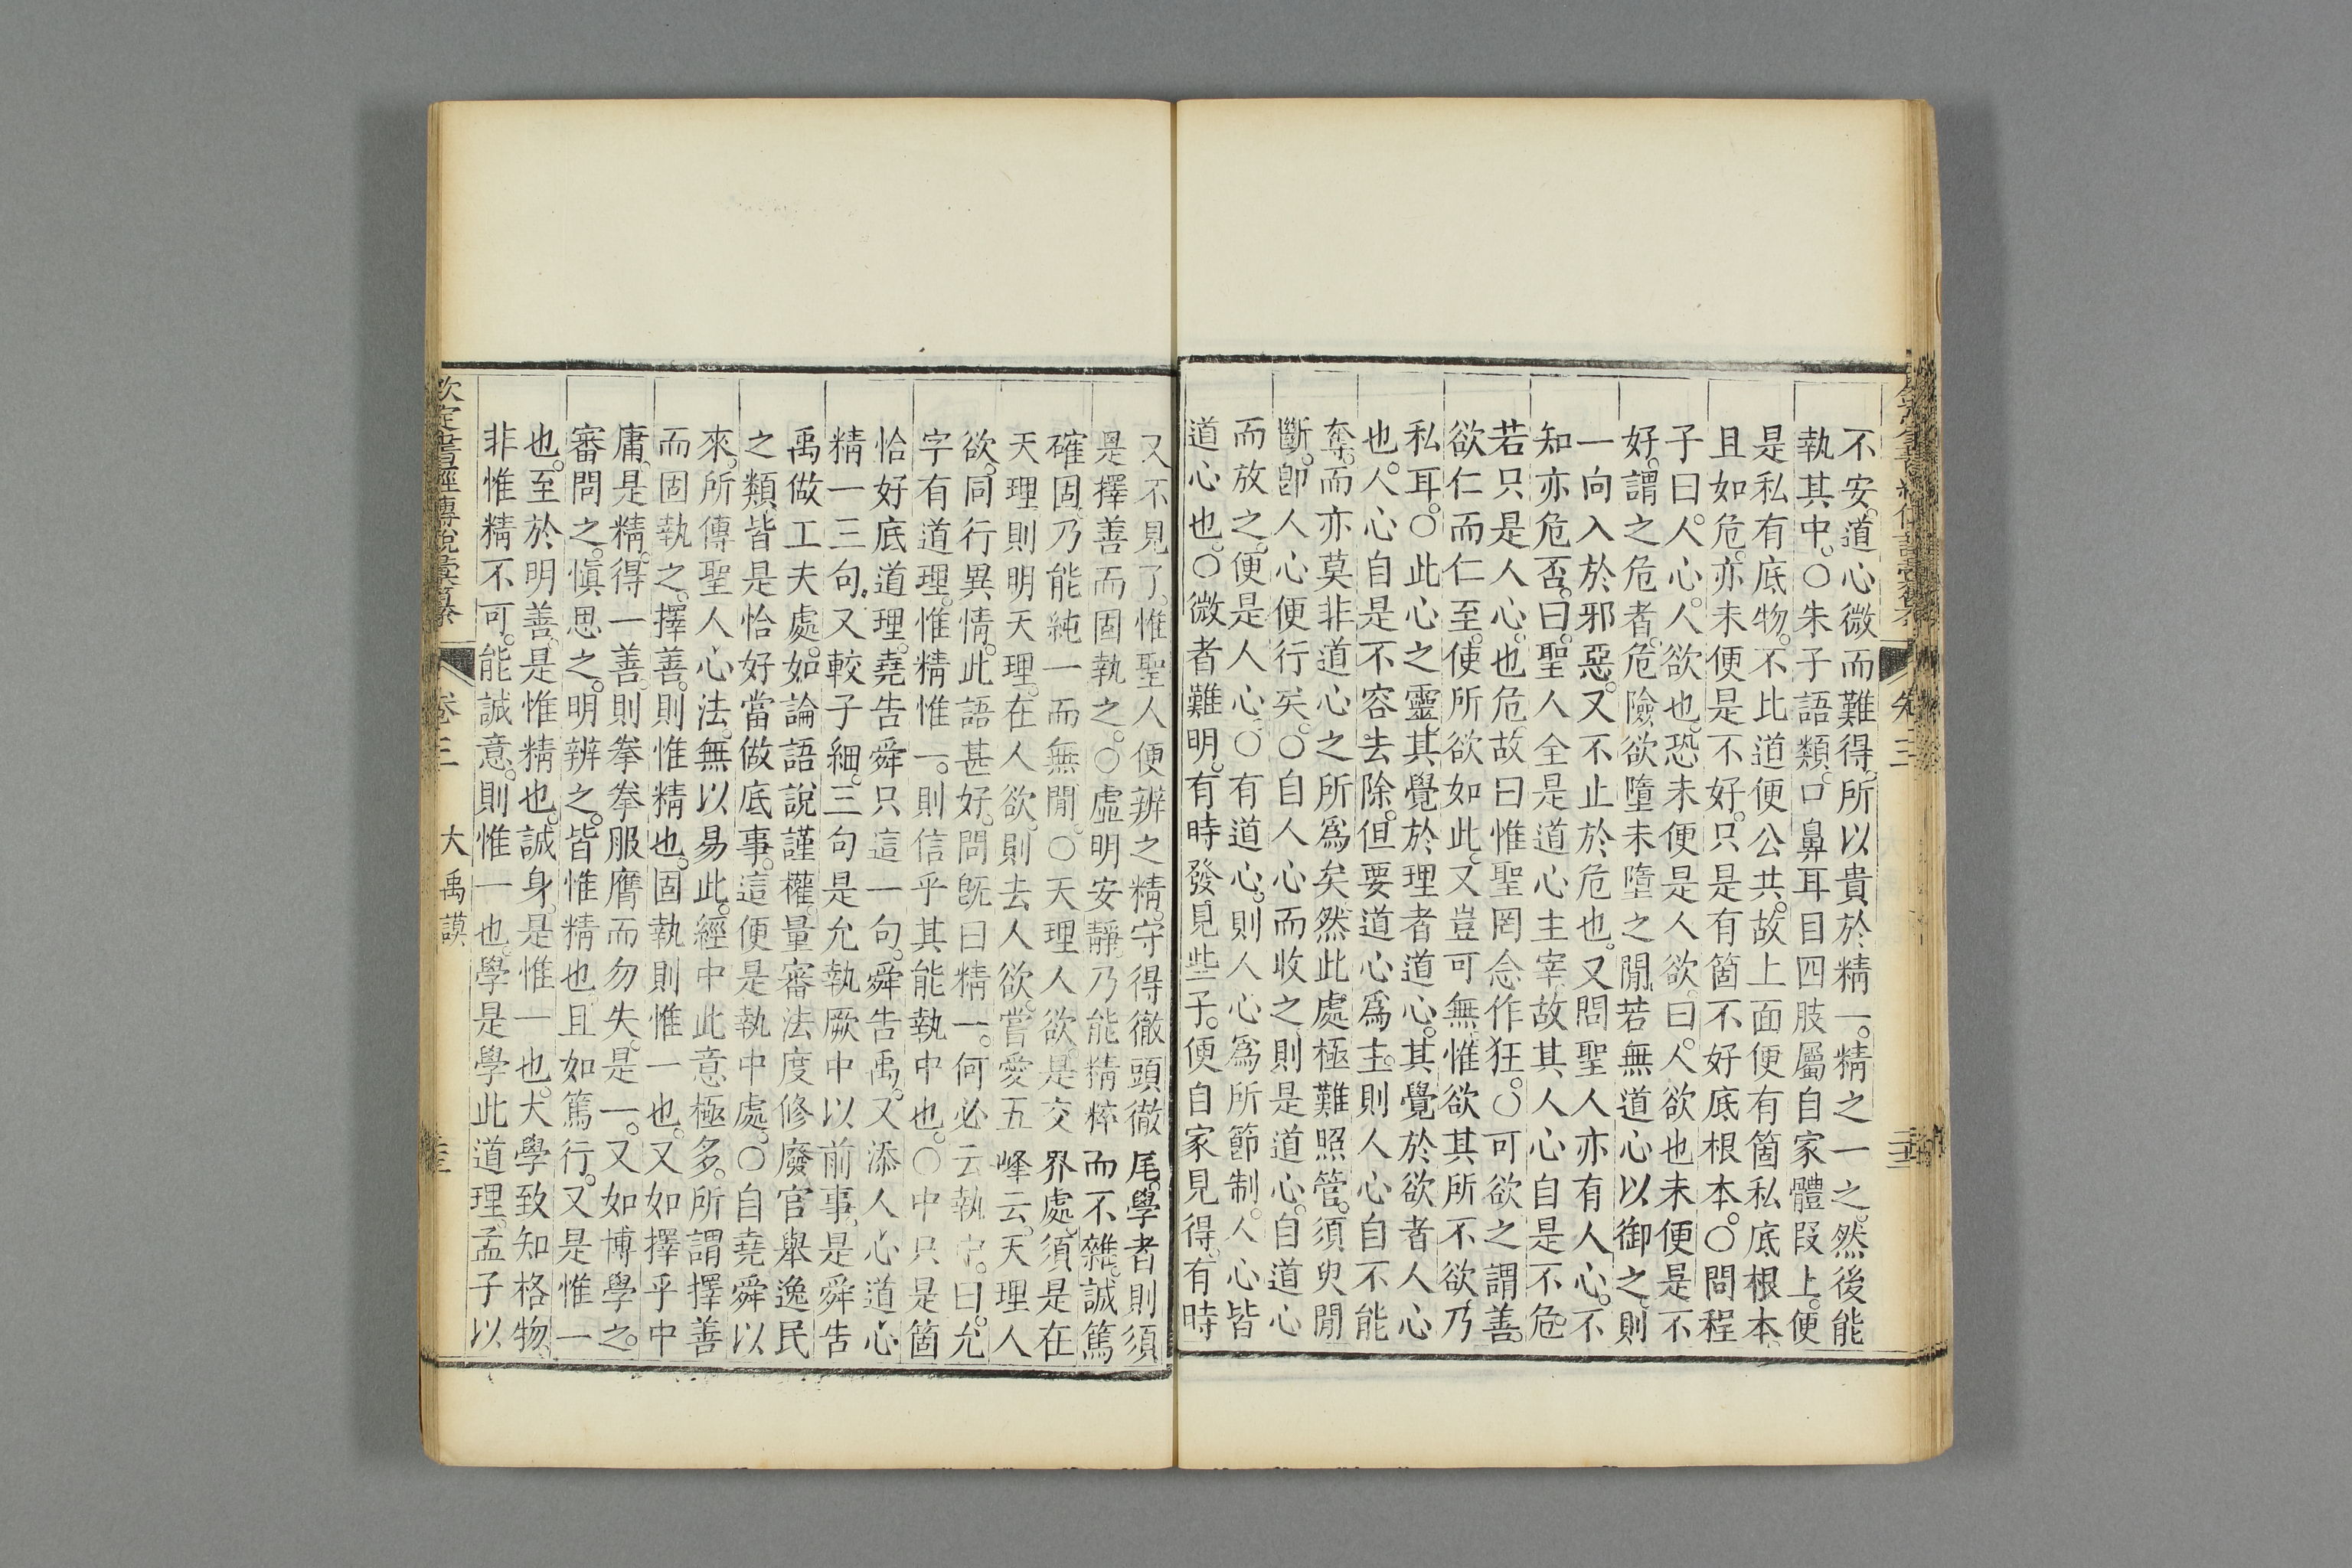 不安。道心微而難得。所以貴於精一。精之一之。然後能
執其中。○朱子語類。口鼻耳目四肢屬自家體段上。便
是私有底物。不比道便公共。故上面便有箇私底根本。
且如危。亦未便是不好。只是有箇不好底根本。○問程
子曰。人心。人欲也。恐未便是人欲。曰。人欲也未便是不
好。謂之危者。危險欲墮未墮之閒。若無道心以御之。則
一向入於邪惡。又不止於危也。又問聖人亦有人心。不
知亦危否。曰。聖人全是道心主宰。故其人心自是不危。
若只是人心。也危。故曰惟聖罔念作狂。○可欲之謂善。
欲仁而仁至。使所欲如此。又豈可無。惟欲其所不欲乃
私耳。○此心之靈。其覺於理者道心。其覺於欲者人心
也。人心自是不容去除。但要道心爲主。則人心自不能
奪。而亦莫非道心之所爲矣。然此處極難照管。須臾閒
斷。卽人心便行矣。○自人心而收之。則是道心。自道心
而放之。便是人心。○有道心。則人心爲所節制。人心皆
道心也。○微者難明。有時發見些子。便自家見得。有時
又不見了。惟聖人便辨之精。守得徹頭徹尾。學者則須
是擇善而固執之。○虛明安靜。乃能精粹而不雜。誠篤
確固。乃能純一而無閒。○天理人欲是交界處。須是在
天理則明天理。在人欲。則去人欲。嘗愛五峰云。天理人
欲。同行異情。此語甚好。問旣曰精一。何必云執中。曰。允
字有道理。惟精惟一。則信乎其能執中也。○中只是箇
恰好底道理。堯告舜只這一句。舜告禹。又添人心道心
精一三句。又較子細。三句是允執厥中以前事。是舜告
禹做工夫處。如論語說謹權。量審法度修廢官舉逸民
之類。皆是恰好當做底事。這便是執中處。○自堯舜以
來。所傳聖人心法。無以易此。經中此意極多。所謂擇善
而固執之。擇善。則惟精也。固執則惟一也。又如擇乎中
庸。是精。得一善則拳拳服膺而勿失。是一。又如博學之。
審問之。愼思之。明辨之。皆惟精也且如篤行。又是惟一
也。至於明善。是惟精也。誠身。是惟一也。大學致知格物。
非惟精不可。能誠意。則惟一也。學是學此道理。孟子以
欽定書經傳說彙纂
卷三
大禹謨